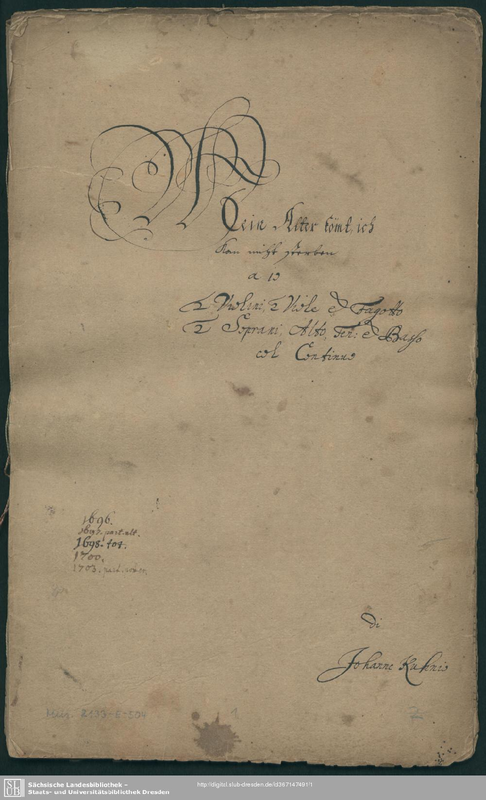 Mein Alter komt, ich
kan nicht sterben
a 10
2 Violini, 2 Viole è Fagotto
2 Soprani, Alto, Ten: è Basso
col Continuo
1696.
1698. tot.
1700.
1703.
di
Johanne Kuhnio
Mus. 2133-E-504
1
Sächsische Landesbibliothek -
Staats- und Universitätsbibliothek Dresden
http://digital.slub-dresden.de/id367147491/1